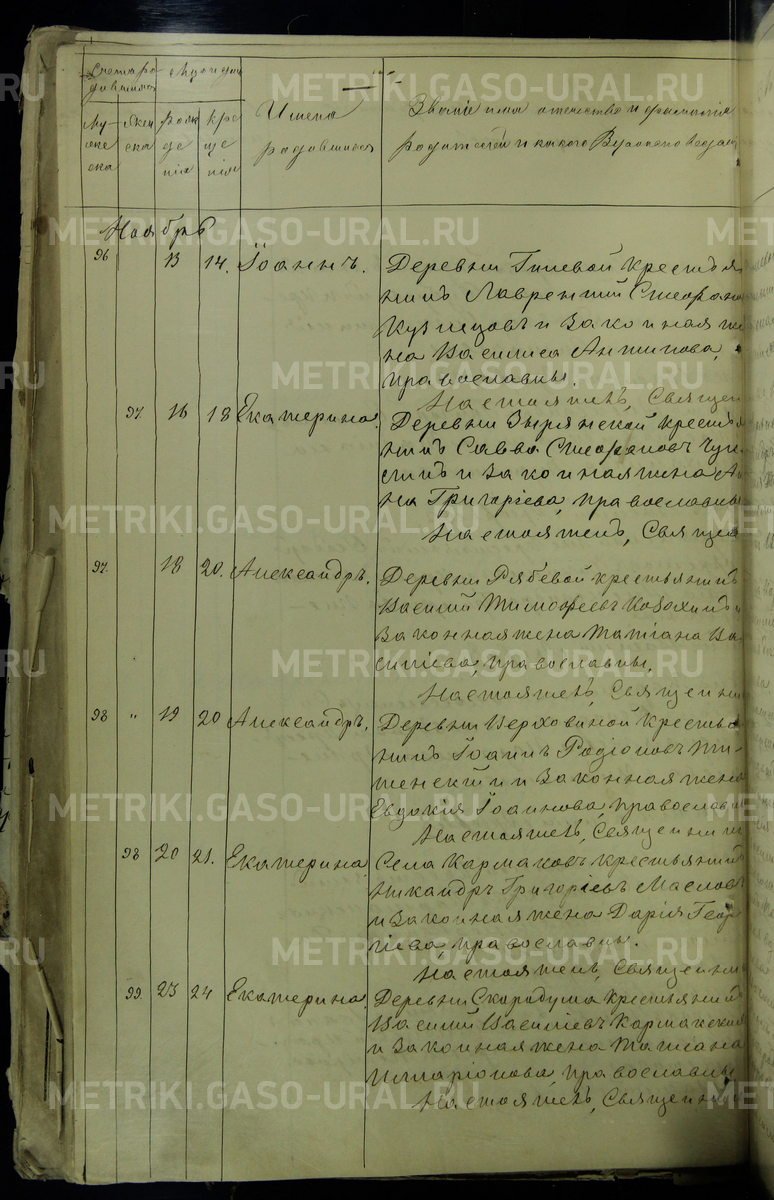 Счетъ ро
дившихся
Мѣсяцъ и день
Му-
жеска
Жен
ска
Рож
де
нія
Кре
ще
нія
Имена
родившихся
Званіе имя отечество и фамилія
родителей и какого Вѣроисповѣдан
Ноябрь
96 13 14. Іоаннъ. Деревни Гилевой крестья
нинъ Лаврентій Стефано
Кузнецовъ и законная же
на Василиса Антипова,
православны.
Настоятель, Священ
97 16 18 Екатерина. Деревни Зырянской кресть
нинъ Савва Стефановъ
и законная жена Ан
на Григоріева, православны
Настоятель, Священ
97. 18 20. Александръ. Деревни Рябевой крестьянинъ
Василій Тимофеевъ и
законная жена Татіана Ва
силіева, православны.
Настоятель, Священни
98 " 19 20 Александръ. Деревни Верховиной Крестья
нинъ Іоаннъ Родіоновъ Ти-
менскій и законная жена
Евдокія Іоаннова, православн
Настоятель, Священник
98 20 21. Екатерина. Села Кармаковъ крестьянинъ
Никандръ Григоріевъ Масловъ
и законная жена Дарія Геор
гіева, православны.
Настоятель, Священни
99 23 24 Екатерина. Деревни Скородума крестьянинъ
Василій Василіевъ Кармакскій
и законная жена Татіана
Илларіонова, православны
Настоятель, Священни
METRIKI.GASO-URAL.RU